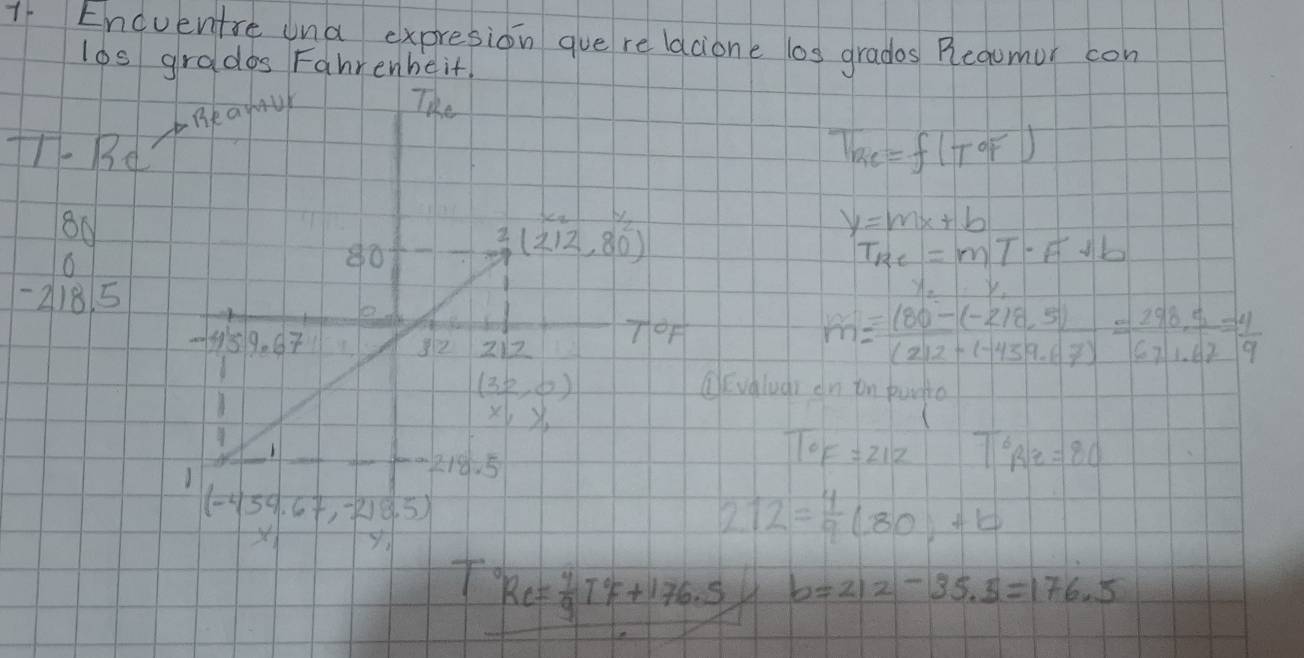 1. Encuentre una expresión que relacione los grados Reaumur con
los grados Fahrenheit.
T-Re → Reamur
80
0
-218.5
TRe
80
0
2 (212, 80)
x2 y2
T°F
-459.67
32 212
(32, 0)
x, y,
-218.5
1
(-459.67, -218.5)
x, y,
TRe = f(T°F)
y = mx + b
TRe = mT·F + b
y2 y,
m = (80 - (-218.5) / (212 - (-459.67) = 298.5 / 671.67 = 4/9
① Evaluar en un punto
T°F = 212 T°Re = 80
212 = 4/9 (80) + b
T°Re = 4/9 T°F + 176.5 b = 212 - 35.5 = 176.5